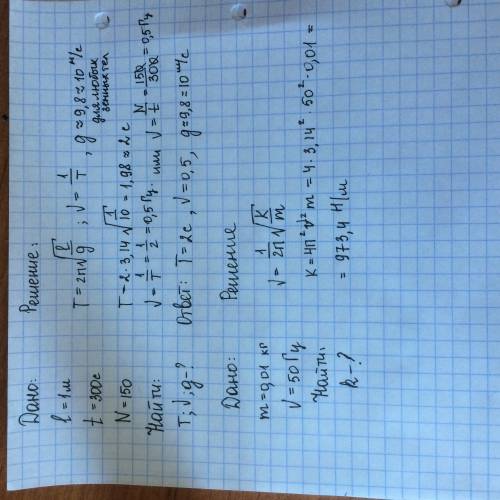 Дано:
l = 1м
t = 300с
N = 150
Найти:
T; ν; g - ?
Решение:
T = 2π√(l/g) ; ν = 1/T , g ≈ 9,8 ≈ 10 м/с
для любых
T = 2·3,14 √(1/10) = 1,98 ≈ 2с
ν = 1/T = 1/2 = 0,5 Гц или ν = N/t = 150/300 = 0,5 Гц
Ответ: T = 2с , ν = 0,5 , g ≈ 9,8 ≈ 10 м/с
Дано:
m = 0,01 кг
ν = 50 Гц
Найти:
k - ?
Решение
ν = 1/2π √(k/m)
K = 4π²ν²m = 4·3,14²·50²·0,01 =
= 973,4 Н/м